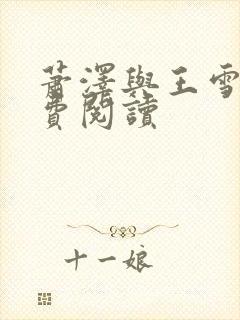 蕭澤與王雪
費閱讀
十一娘